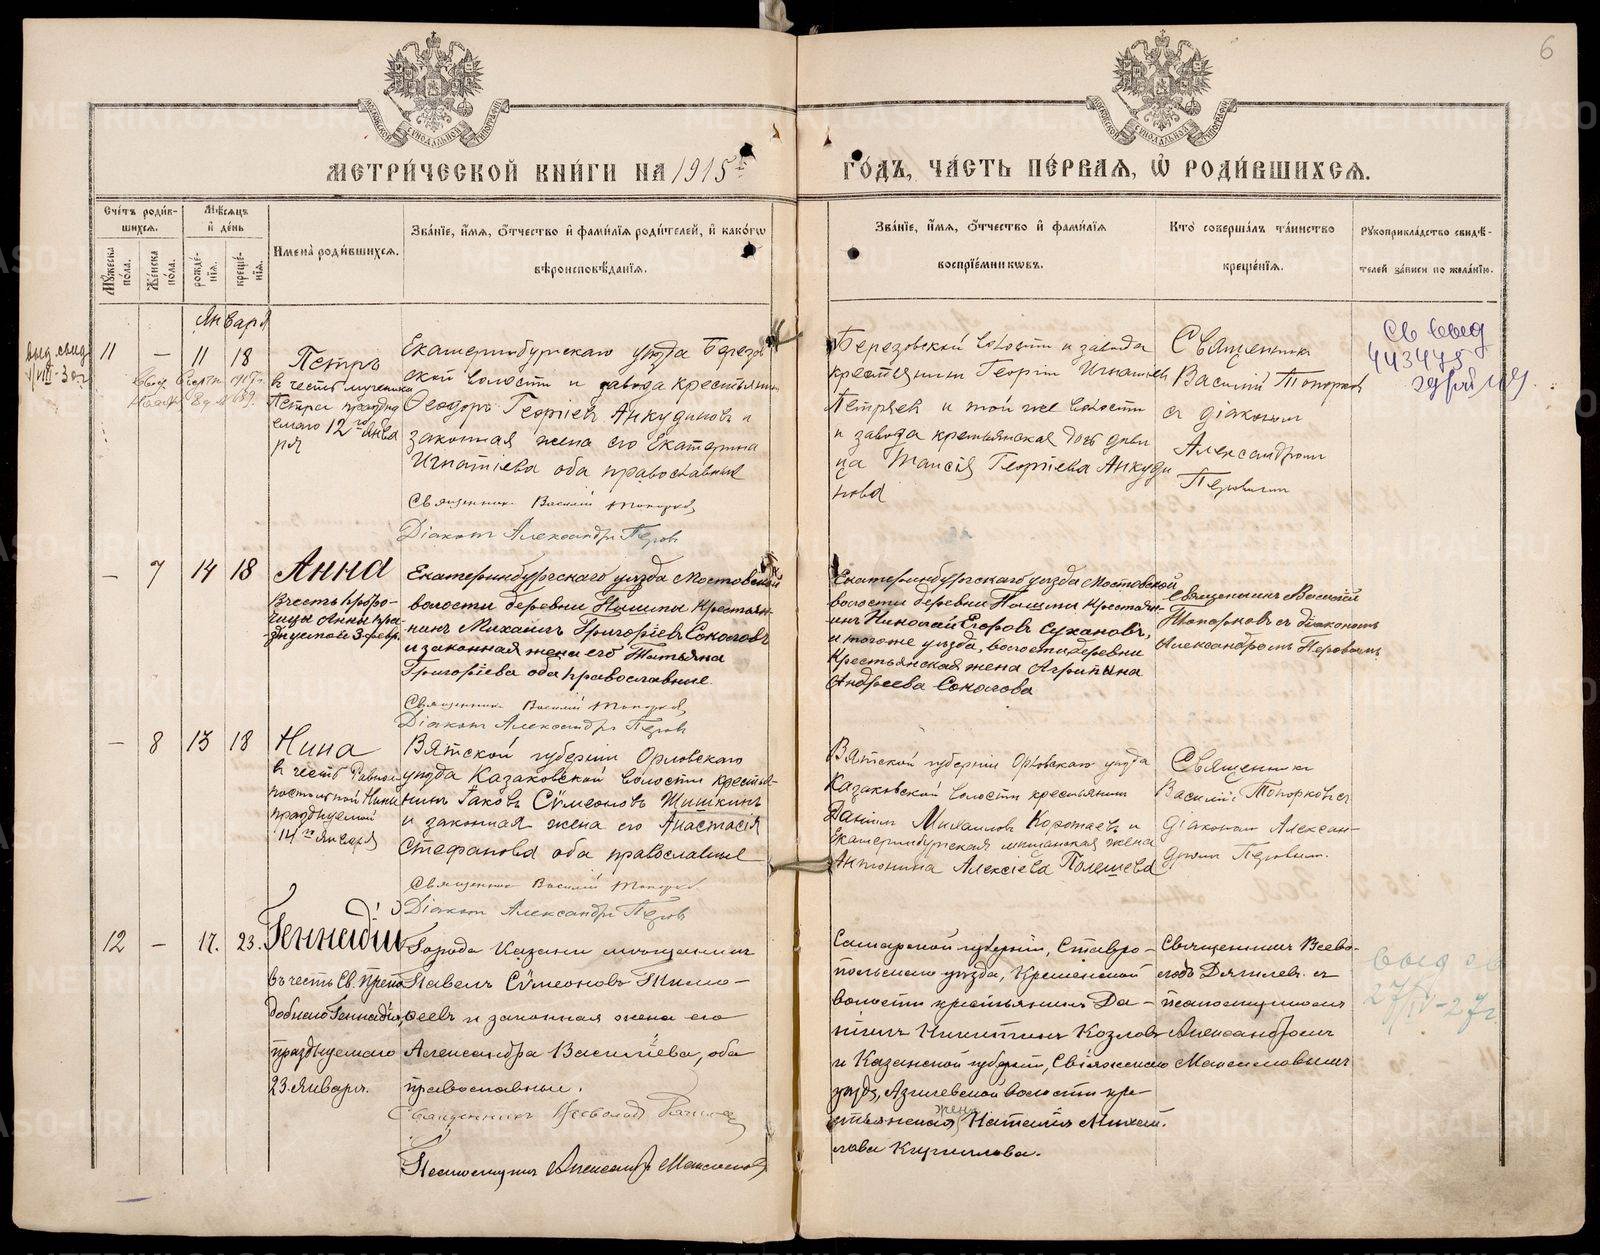 6
МЕТРИ́ЧЕСКОЙ КНИ́ГИ НА 1915й
ГО́ДЪ, ЧА́СТЬ ПЕ́РВАЯ, Ѿ РОДИ́ВШИХСЯ.
Сче́тъ роди́вшихся.
Мѣ́сяцъ и҆ де́нь
Мꙋ́жеска по́ла.
Же́нска по́ла.
рожде́нїѧ.
креще́нїѧ.
И҆мена̀ роди́вшихсѧ.
Зва́нїе, и҆́мѧ, ѻ҆́тчество и҆ фами́лїѧ роди́телей, и҆ како́гѡ
вѣроисповѣ́данїѧ.
Зва́нїе, и҆́мѧ, ѻ҆́тчество и҆ фами́лїѧ
воспрїе́мникѡвъ.
Кто̀ соверша́лъ та́инство
креще́нїѧ.
Рꙋкоприкла́дство свидѣ́-
телей за́писи по жела́нїю.
Января
11 — 11 18
Петръ
въ честь мученика
Петра праздну
емаго 12го Янва
ря
Екатеринбургскаго уѣзда Березов
ской волости и завода крестьянинъ
Ѳеодоръ Георгіевъ Анкудиновъ и
законная жена его Екатерина
Игнатіева оба православные
Священникъ Василій Топорков
Діаконъ Александръ Перов
Березовской волости и завода
крестьянинъ Георгій Игнатьевъ
Петряев и той же волости
и завода крестьянская дочь деви
ца Таисія Георгіева Анкуди
нова
Священник
Василій Топорков
съ діаконом
Александром
Перовым
Св выд
443475
— 7 14 18
Анна
въ честь проро-
чицы Анны пра-
зднуемой 3 февр.
Екатеринбургскаго уѣзда Мостовской
волости деревни Пышмы Крестьян-
нинъ Михаилъ Григорьевъ Соколовъ
и законная жена его Татьяна
Григорьева оба православные.
Священник Василій Топорков
Діаконъ Александръ Перов
Екатеринбургскаго уѣзда Мостовской
волости деревни Пышмы Крестьян-
инъ Николай Егоровъ Сухановъ,
и тогоже уѣзда, волости, деревни
Крестьянская жена Агрипина
Андреева Соколова
Священникъ Василій
Топорковъ съ діакономъ
Александромъ Перовымъ
— 8 13 18
Нина
въ честь Равноа-
постольной Нины
празднуемой
14го января
Вятской губерніи Орловскаго
уѣзда Казаковской волости крестья-
нинъ Іаковъ Сѵмеоновъ Шишкинъ
и законная жена его Анастасія
Стефанова оба православные
Священник Василій Топорков
Діаконъ Александръ Перов
Вятской губерніи Орловскаго уѣзда
Казаковской волости крестьянинъ
Даніил Михаилов Коротаевъ и
Екатеринбургская мѣщанская жена
Антонина Алексіева Полешева
Священник
Василій Топорковъ съ
діаконом Алексан-
дром Перовым.
12 — 17. 23.
Геннадій
въ честь Св. Препо
добнаго Геннадія,
празднуемаго
23 января.
Города Казани мѣщанинъ
Павелъ Сѵмеоновъ Тимо-
феевъ и законная жена его
Александра Васильева, оба
православные.
Священникъ Всеволод
Псаломщикъ Александръ Максимовъ
Самарской губерніи, Ставро-
польскаго уѣзда, Кременской
волости крестьянинъ Да-
ніилъ Никитинъ Козловъ
и Казанской губерніи, Свіяжскаго
уѣзда, Азелеевской волости кре-
стьянская жена Наталія Михай-
лова Кириллова.
Священникъ Всево-
лодъ Дягилевъ съ
псаломщикомъ
Александромъ
Максимовымъ
выд св
27/IV-27г.